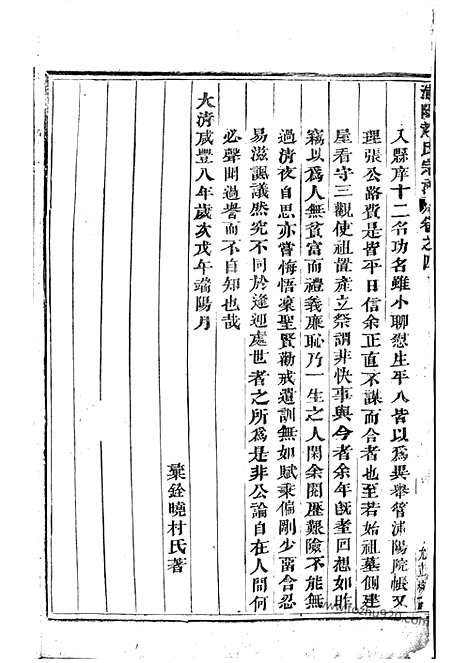 浦陽趙氏宗譜 卷之四
入縣庠十二名功名雖小聊慰生平八皆以為異舉管浦陽院帳又
理張公路費是皆平日信余正直不謀而合者也至若始祖墓側建
屋看守三觀使祖置產立祭謂非快事與今者余年旣耋回想如昨
竊以為人無貧富而禮義廉恥乃一生之人閑余閱歷艱險不能無
過清夜自思亦嘗悔悟稟聖賢勸戒遺訓無如賦秉偏剛少萵合忍
易滋諷議然究不同於逢迎處世者之所為是非公論自在人間何
必聲聞過譽而不自知也哉
大清咸豐八年歲次戊午端陽月
稾銓曉村氏著
www.fozhu920.com